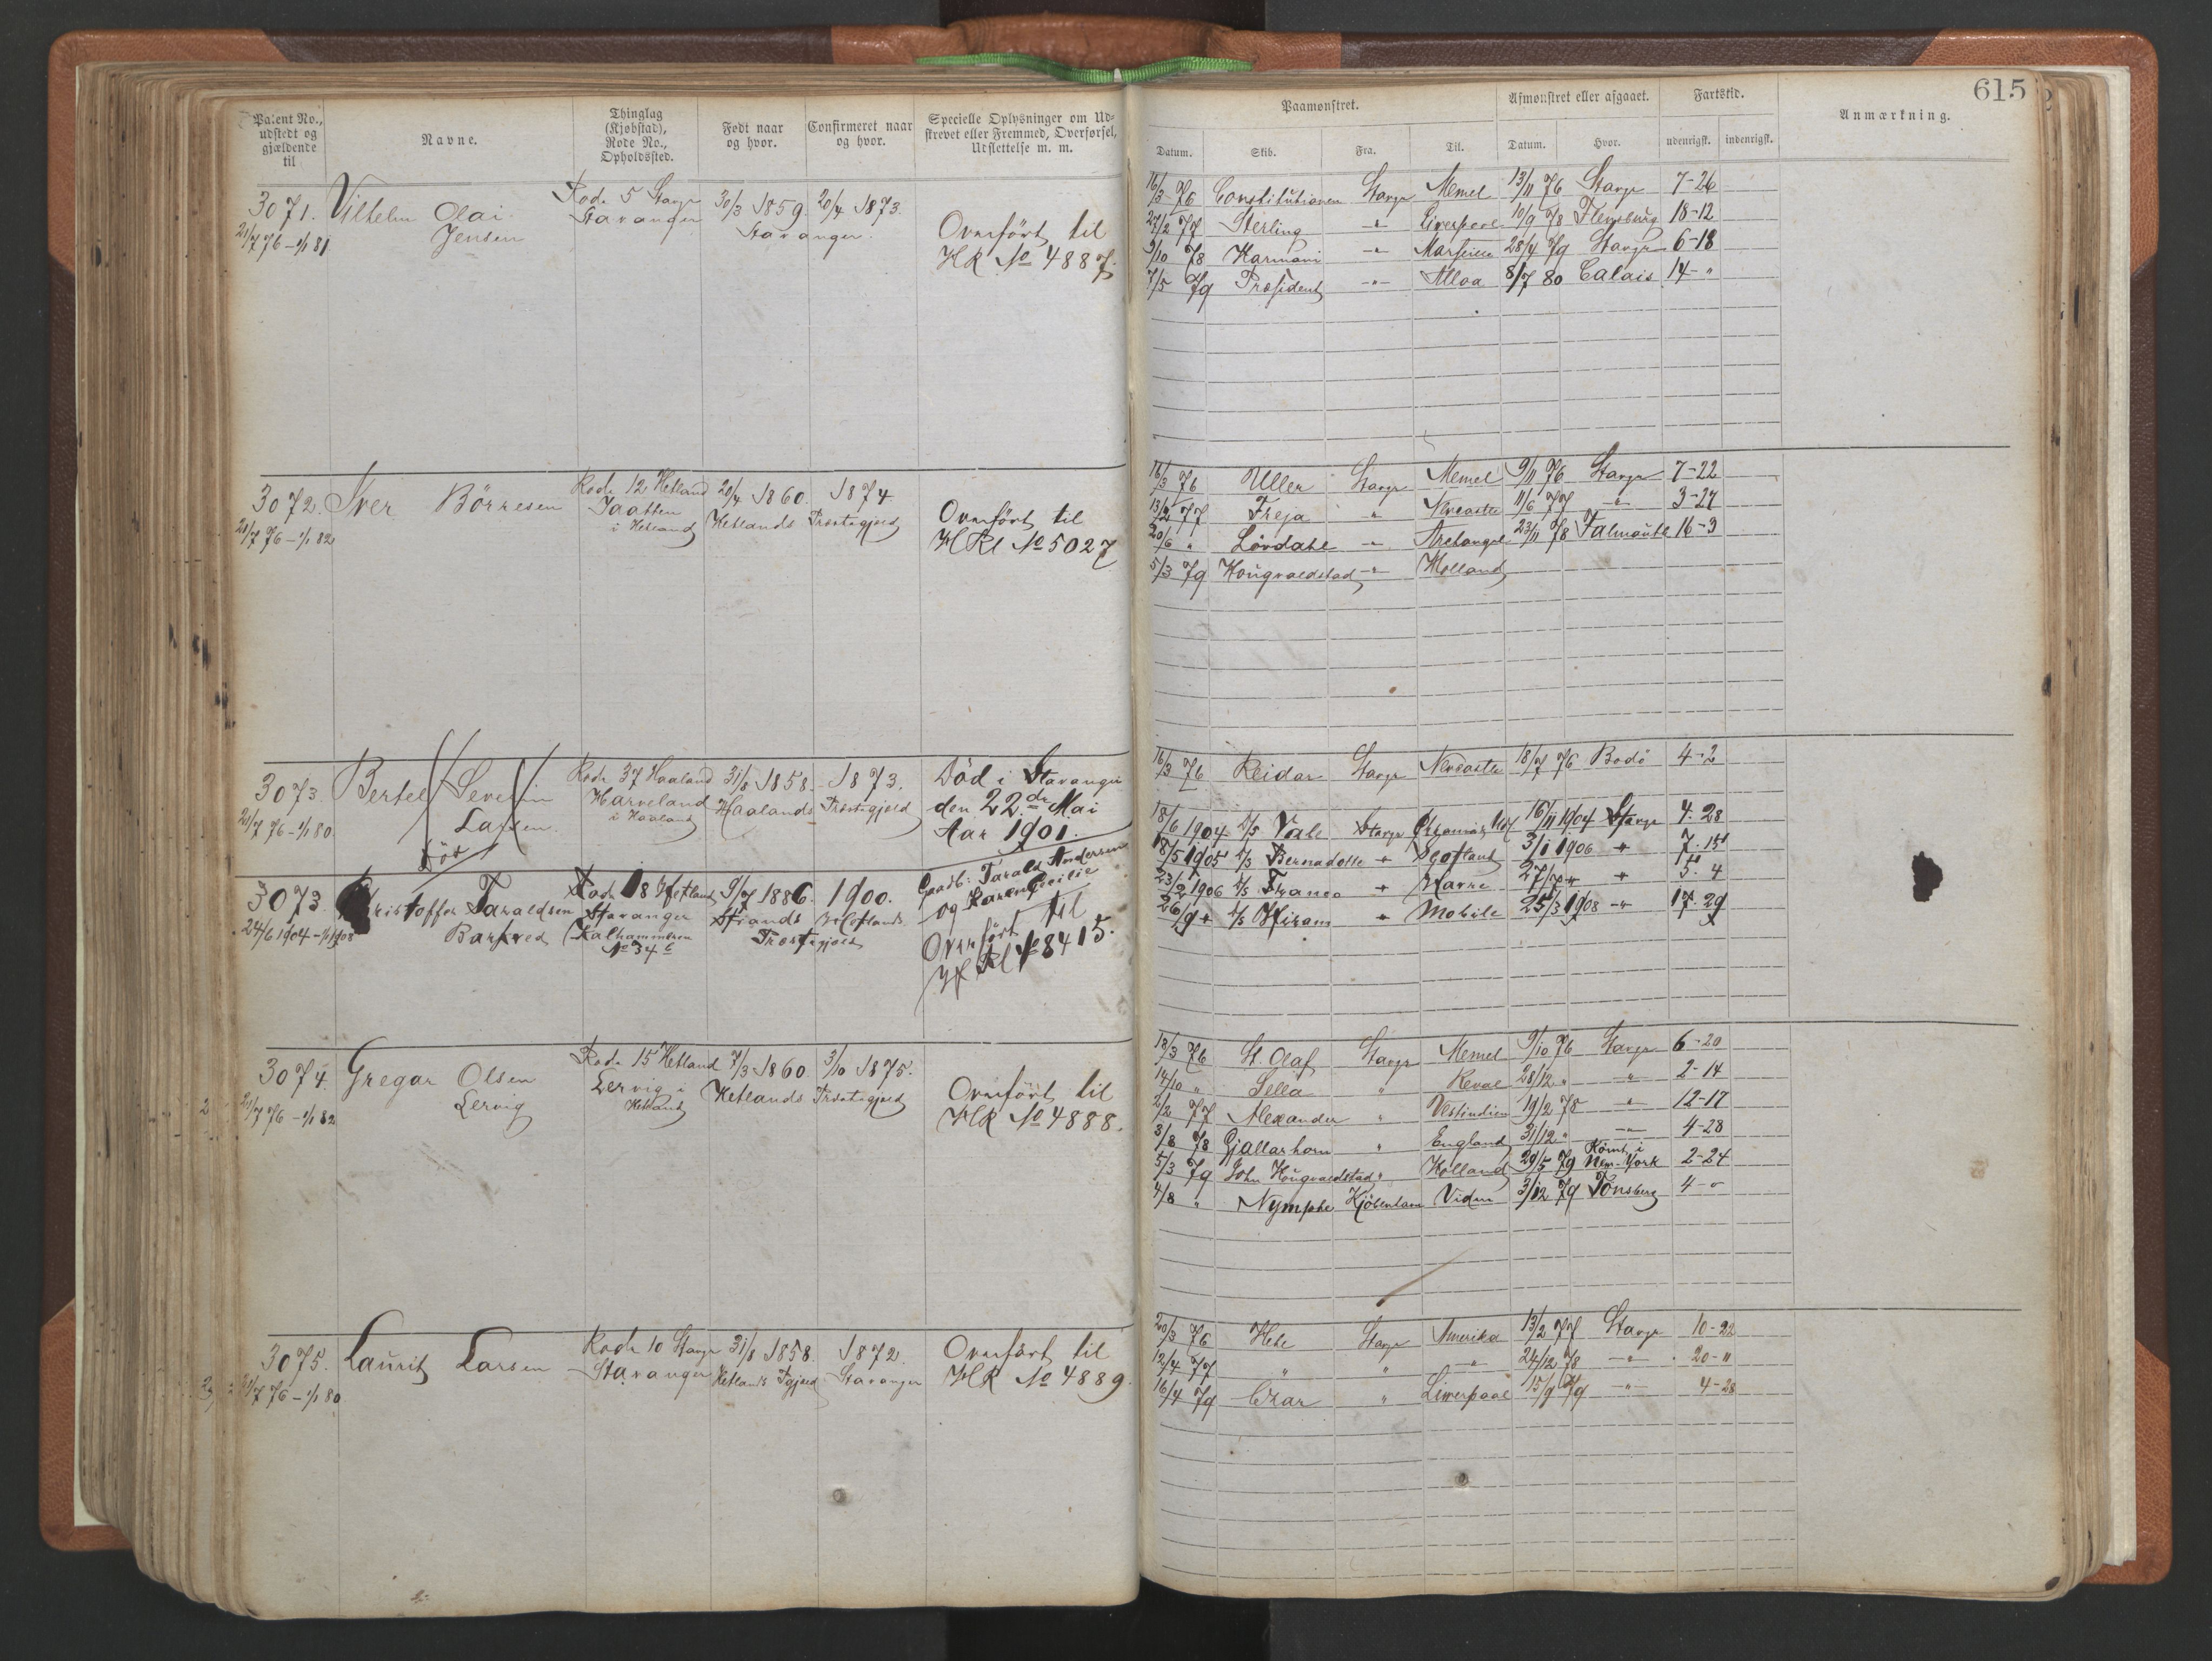 615
Patent No., udstedt og gjældende til
Navne.
Thinglag (Kjøbstad), Rode No., Opholdssted.
Født naar og hvor.
Confirmeret naar og hvor.
Specielle Oplysninger om Udskrevet eller Fremmed, Overførsel, Udslettelse m. m.
Paamønstret.
Afmønstret eller afgaaet.
Fartstid.
Anmærkning.
Datum. Skib. Fra. Til. Datum. Hvor. udenrigsk. indenrigsk.
3071. Vilhelm Olai Jensen
21/7 76 - 1/1 81
Rode 5 Stavgr Stavanger
30/3 1859. 20/4 1873.
Stavanger.
Overført til
HR No 4887.
16/3 76 Constitutionen Stavgr Memel 13/11 76 Stavgr 7-26
27/2 77 Sterling -"- Liverpool 10/9 78 Flensburg 18-12
9/10 78 Karmani -"- Marseille 28/4 79 Stavgr 6-18
7/5 79 Præsident -"- Alloa 8/7 80 Calais 14-"
3072. Iver Börresen
21/7 76 - 1/1 82
Rode 12 Hetland
Jaatten
i Hetland
20/4 1860. 1874
Hetlands Præstegjeld
Overført til
HRl No 5027
16/3 76 Uller Stavgr Memel 9/11 76 Stavgr 7-22
13/2 77 Freja " Newcastle 11/6 77 -"- 3-27
20/6 " Lövdahl -"- Archangel 23/11 78 Falmouth 16-3
5/3 79 Kongvaldstad -"- Holland
3073. Bertel Severin Larsen
21/7 76 - 1/1 80.
Död
Rode 37 Haaland
Harveland
i Haaland
31/8 1858. 1873.
Haalands Præstegjeld
Död i Stavanger
den 22de Mai
Aar 1901.
16/3 76 Reidar Stavgr Newcastle 18/7 76 Bodö 4-2
3073. Kristoffer Taraldsen Barkved
24/6 1904 - 1/1 1908
Rode 18 Hetland
Stavanger
Kalhammeren
No 34 c
9/7 1886. 1900.
Strands
Præstegjeld
Tarald Andersen
og Karen Cecilie
Overført til
HRl No 8415.
18/6 1904 D/S Vale Stavgr 16/11 1904 Stavgr 4. 28
18/5 1905 D/S Bernadotte " Skotland 3/1 1906 " 7. 15
23/2 1906 D/S Franco " Havre 27/7 " " 5. 4
26/9 " D/S Hiram " Mobile 25/3 1908 -"- 17. 29
3074. Gregar Olsen Lervig
21/7 76 - 1/1 82
Rode 15 Hetland
Lervig i
Hetland
7/3 1860. 3/10 1875.
Hetlands Præstegjeld
Overført til
HR No 4888.
18/3 76 St. Olaf Stavgr Memel 9/10 76 Stavgr 6-20
14/10 " Sella " Reval 28/12 " " 2-14
2/2 77 Alexander " Vestindien 19/2 78 -"- 12-17
3/8 78 Gjallarhorn " England 31/12 " -"- 4-28
5/3 79 John Kongvaldstad " Holland 29/5 79 Römt i New-York 2-24
4/8 " Nymphe Kjöbenhavn 3/12 79 Tönsberg 4-0
3075. Laurits Larsen
21/7 76 - 1/1 80
Rode 10 Stavgr
Stavanger
31/8 1858. 1872.
Hetlands Pgjeld Stavanger
Overført til
HR No 4889.
20/3 76 Hebe Stavgr Amerika 13/2 77 Stavgr 10-22
12/4 77 " " -"- 24/12 78 -"- 20-11
16/4 79 Czar " Liverpool 15/9 79 -"- 4-28